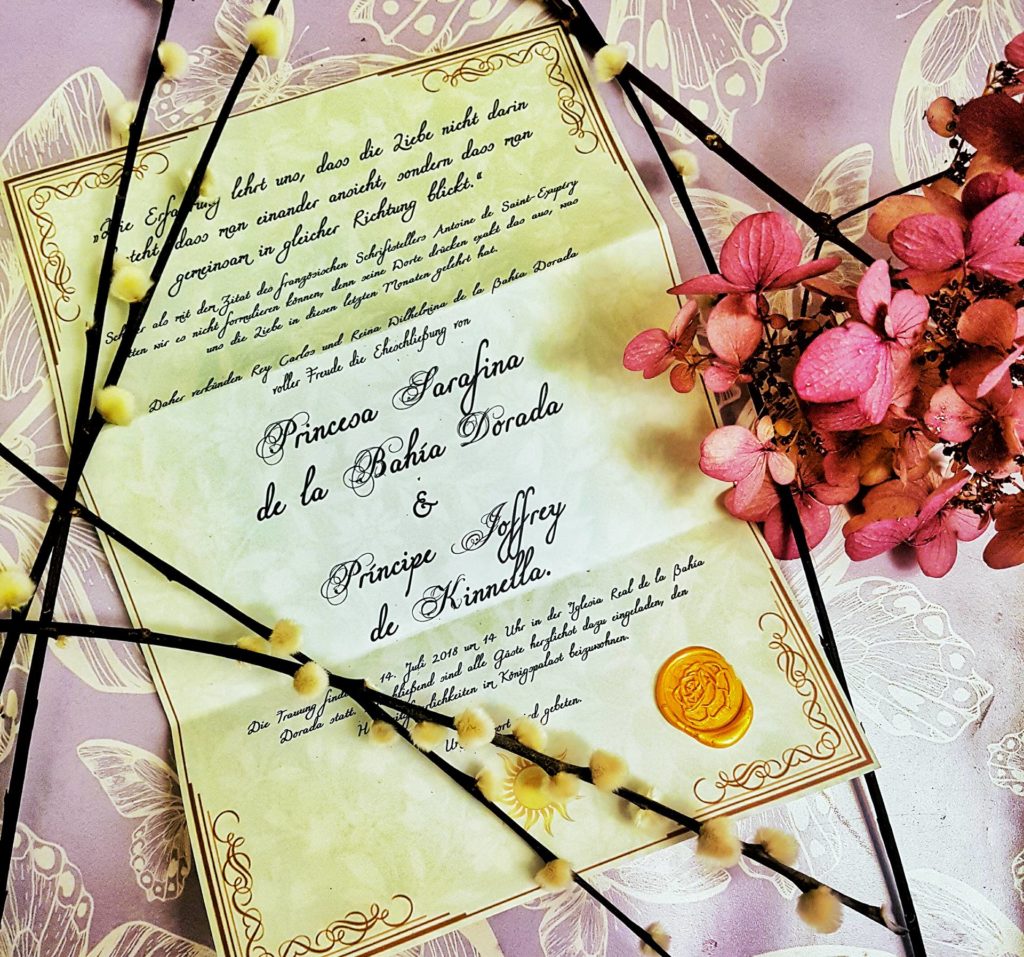 „Die Erfahrung lehrt uns, dass die Liebe nicht darin
steht, dass man einander ansieht, sondern dass man
gemeinsam in gleicher Richtung blickt.“
als mit den Zitat des französischen Schriftstellers Antoine de Saint-Exupéry
wir es nicht formulieren können, denn seine Worte drücken exakt das aus, was
uns die Liebe in diesen letzten Monaten gelehrt hat.
Daher verkünden Rey Carlos und Reina Wilhelmina de la Bahía Dorada
voller Freude die Eheschließung von
Princesa Sarafina
de la Bahía Dorada
&
Príncipe Joffrey
de Kinnella.
Die Trauung 14. Juli 2018 um 14 Uhr in der Iglesia Real de la Bahía
Dorada statt. sind alle Gäste herzlichst dazu eingeladen, den
im Königspalast beizuwohnen.
wird gebeten.